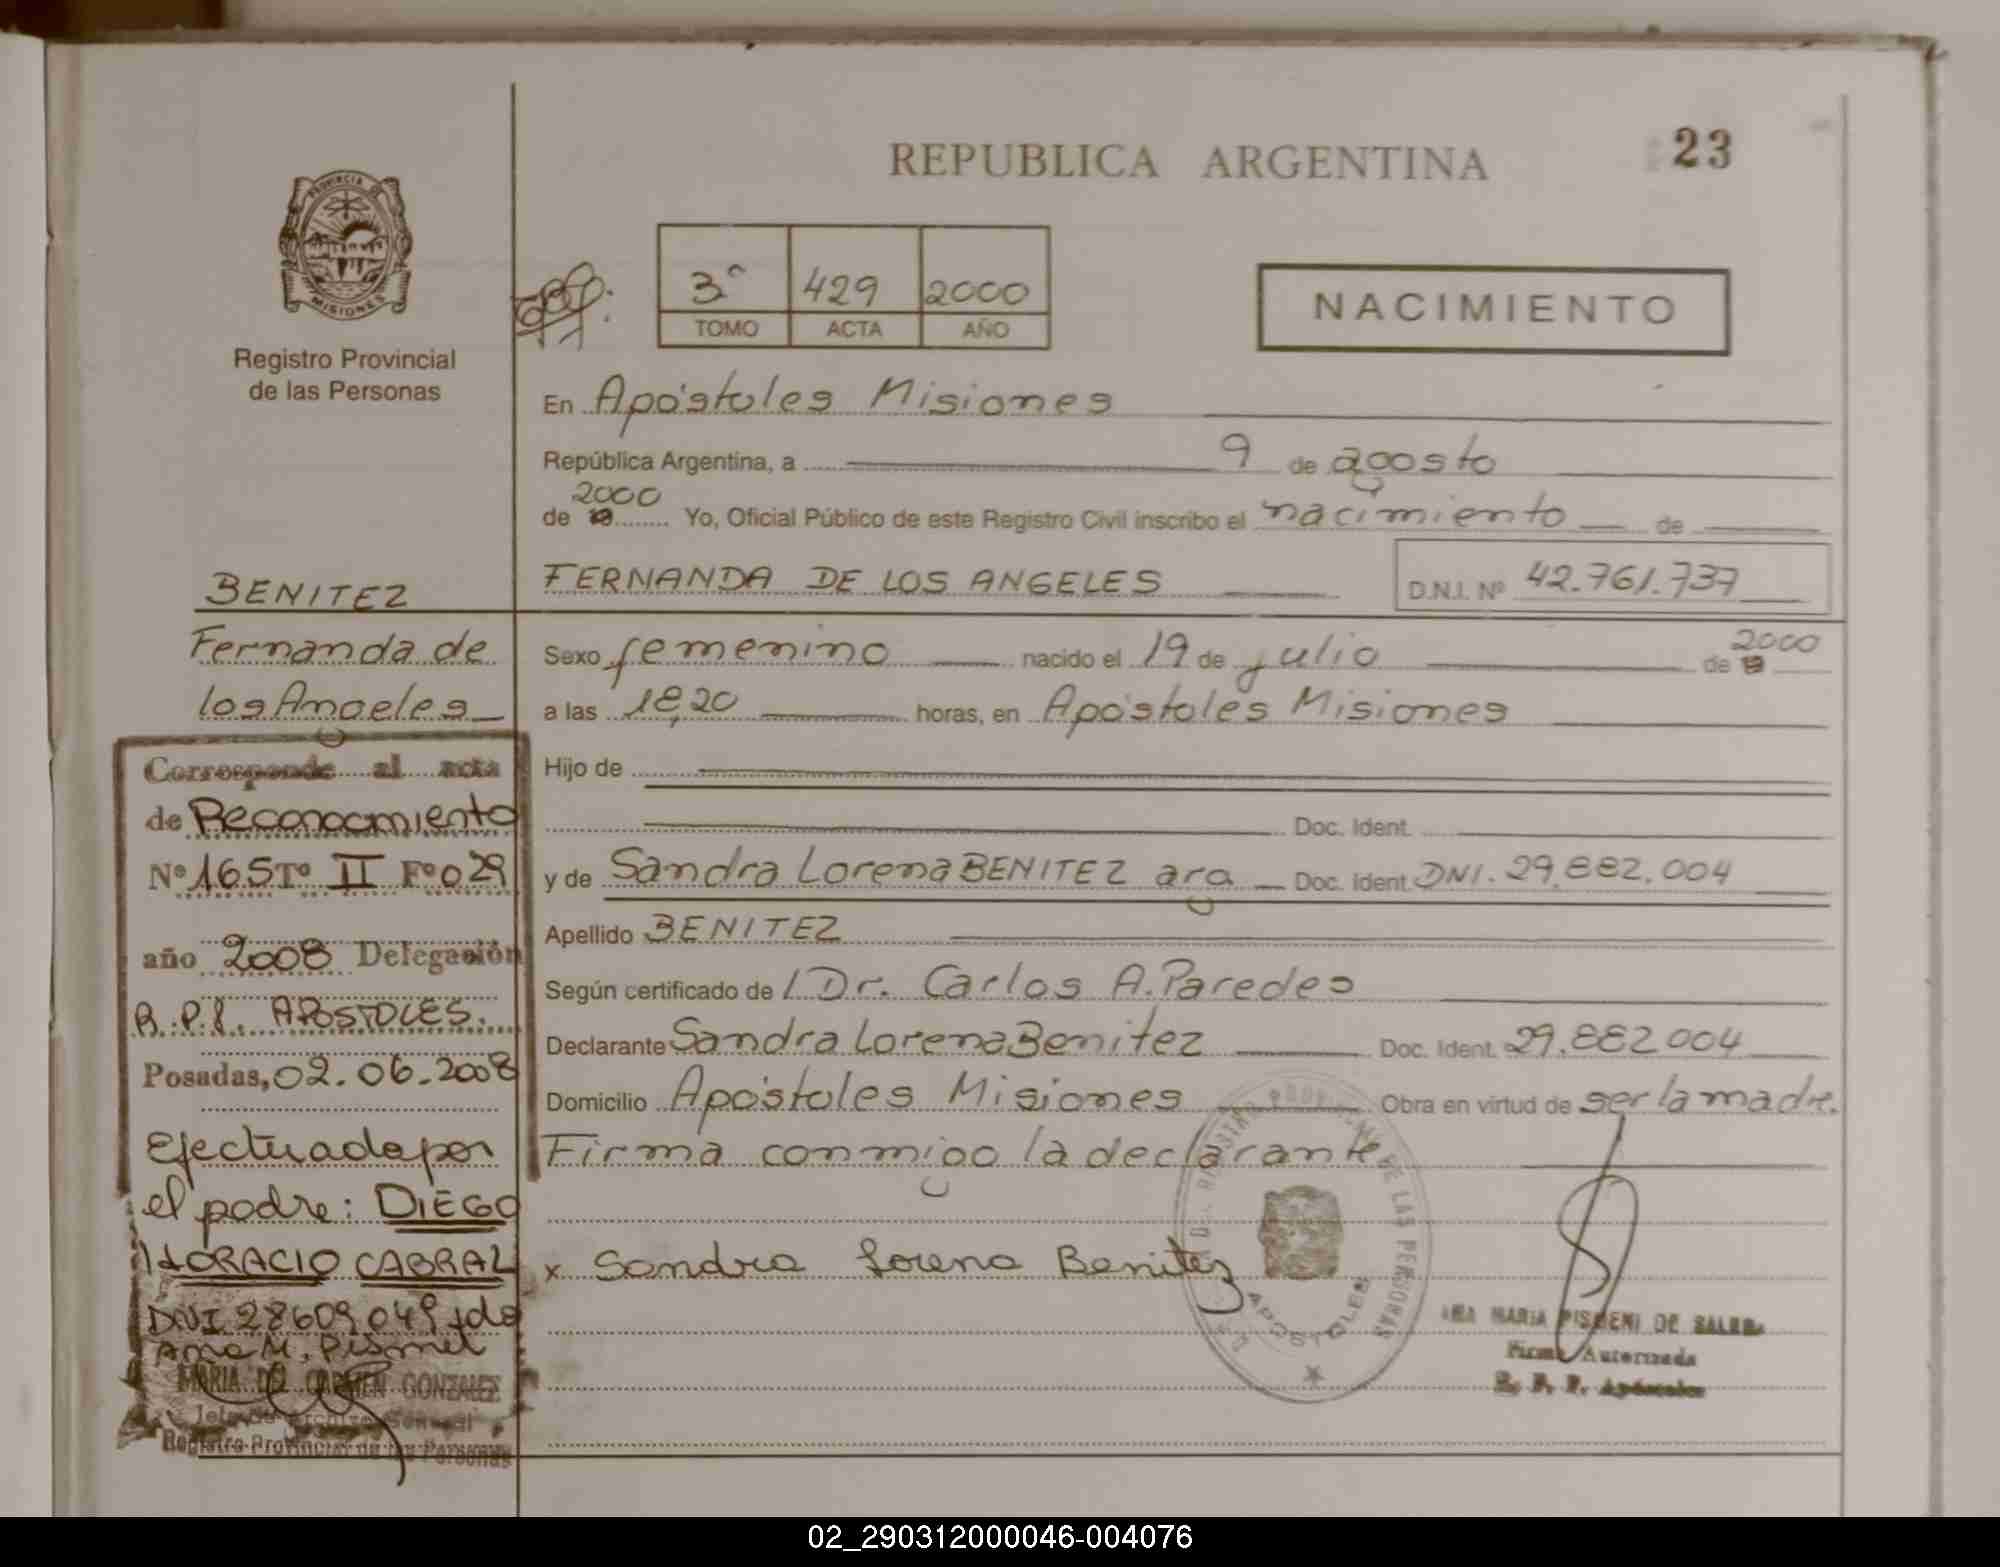 REPUBLICA ARGENTINA
23
PROVINCIA DE
MISIONES
Registro Provincial
de las Personas
3° 429 2000
TOMO ACTA AÑO
NACIMIENTO
En Apóstoles Misiones
República Argentina, a 9 de agosto
de 2000 Yo, Oficial Público de este Registro Civil inscribo el nacimiento de
FERNANDA DE LOS ANGELES D.N.I. Nº 42.761.737
Sexo femenino nacido el 19 de julio de 2000
a las 18,20 horas, en Apóstoles Misiones
Hijo de
Doc. Ident.
y de Sandra Lorena BENITEZ arg Doc. Ident. DNI. 29.882.004
Apellido BENITEZ
Según certificado de Dr. Carlos A. Paredes
Declarante Sandra Lorena Benitez Doc. Ident. 29.882.004
Domicilio Apóstoles Misiones Obra en virtud de ser la madre.
Firma conmigo la declarante
x Sandra Lorena Benitez
DE LAS PERSONAS
APOSTOLES
MARIA DE
Firma Autorizada
R. P. P. Apóstoles
BENITEZ
Fernanda de
los Angeles
Corresponde al acta
de Reconocimiento
Nº 165 Tº II Fº 029
año 2008 Delegación
R.P.P. APOSTOLES.
Posadas, 02.06.2008
Efectuada por
el padre: DIEGO
HORACIO CABRAL
DNI 28609049 fdo
Ana M. Pismel
MARIA DEL CARMEN GONZALEZ
Jefa de Archivo General
Registro Provincial de las Personas
02_290312000046-004076